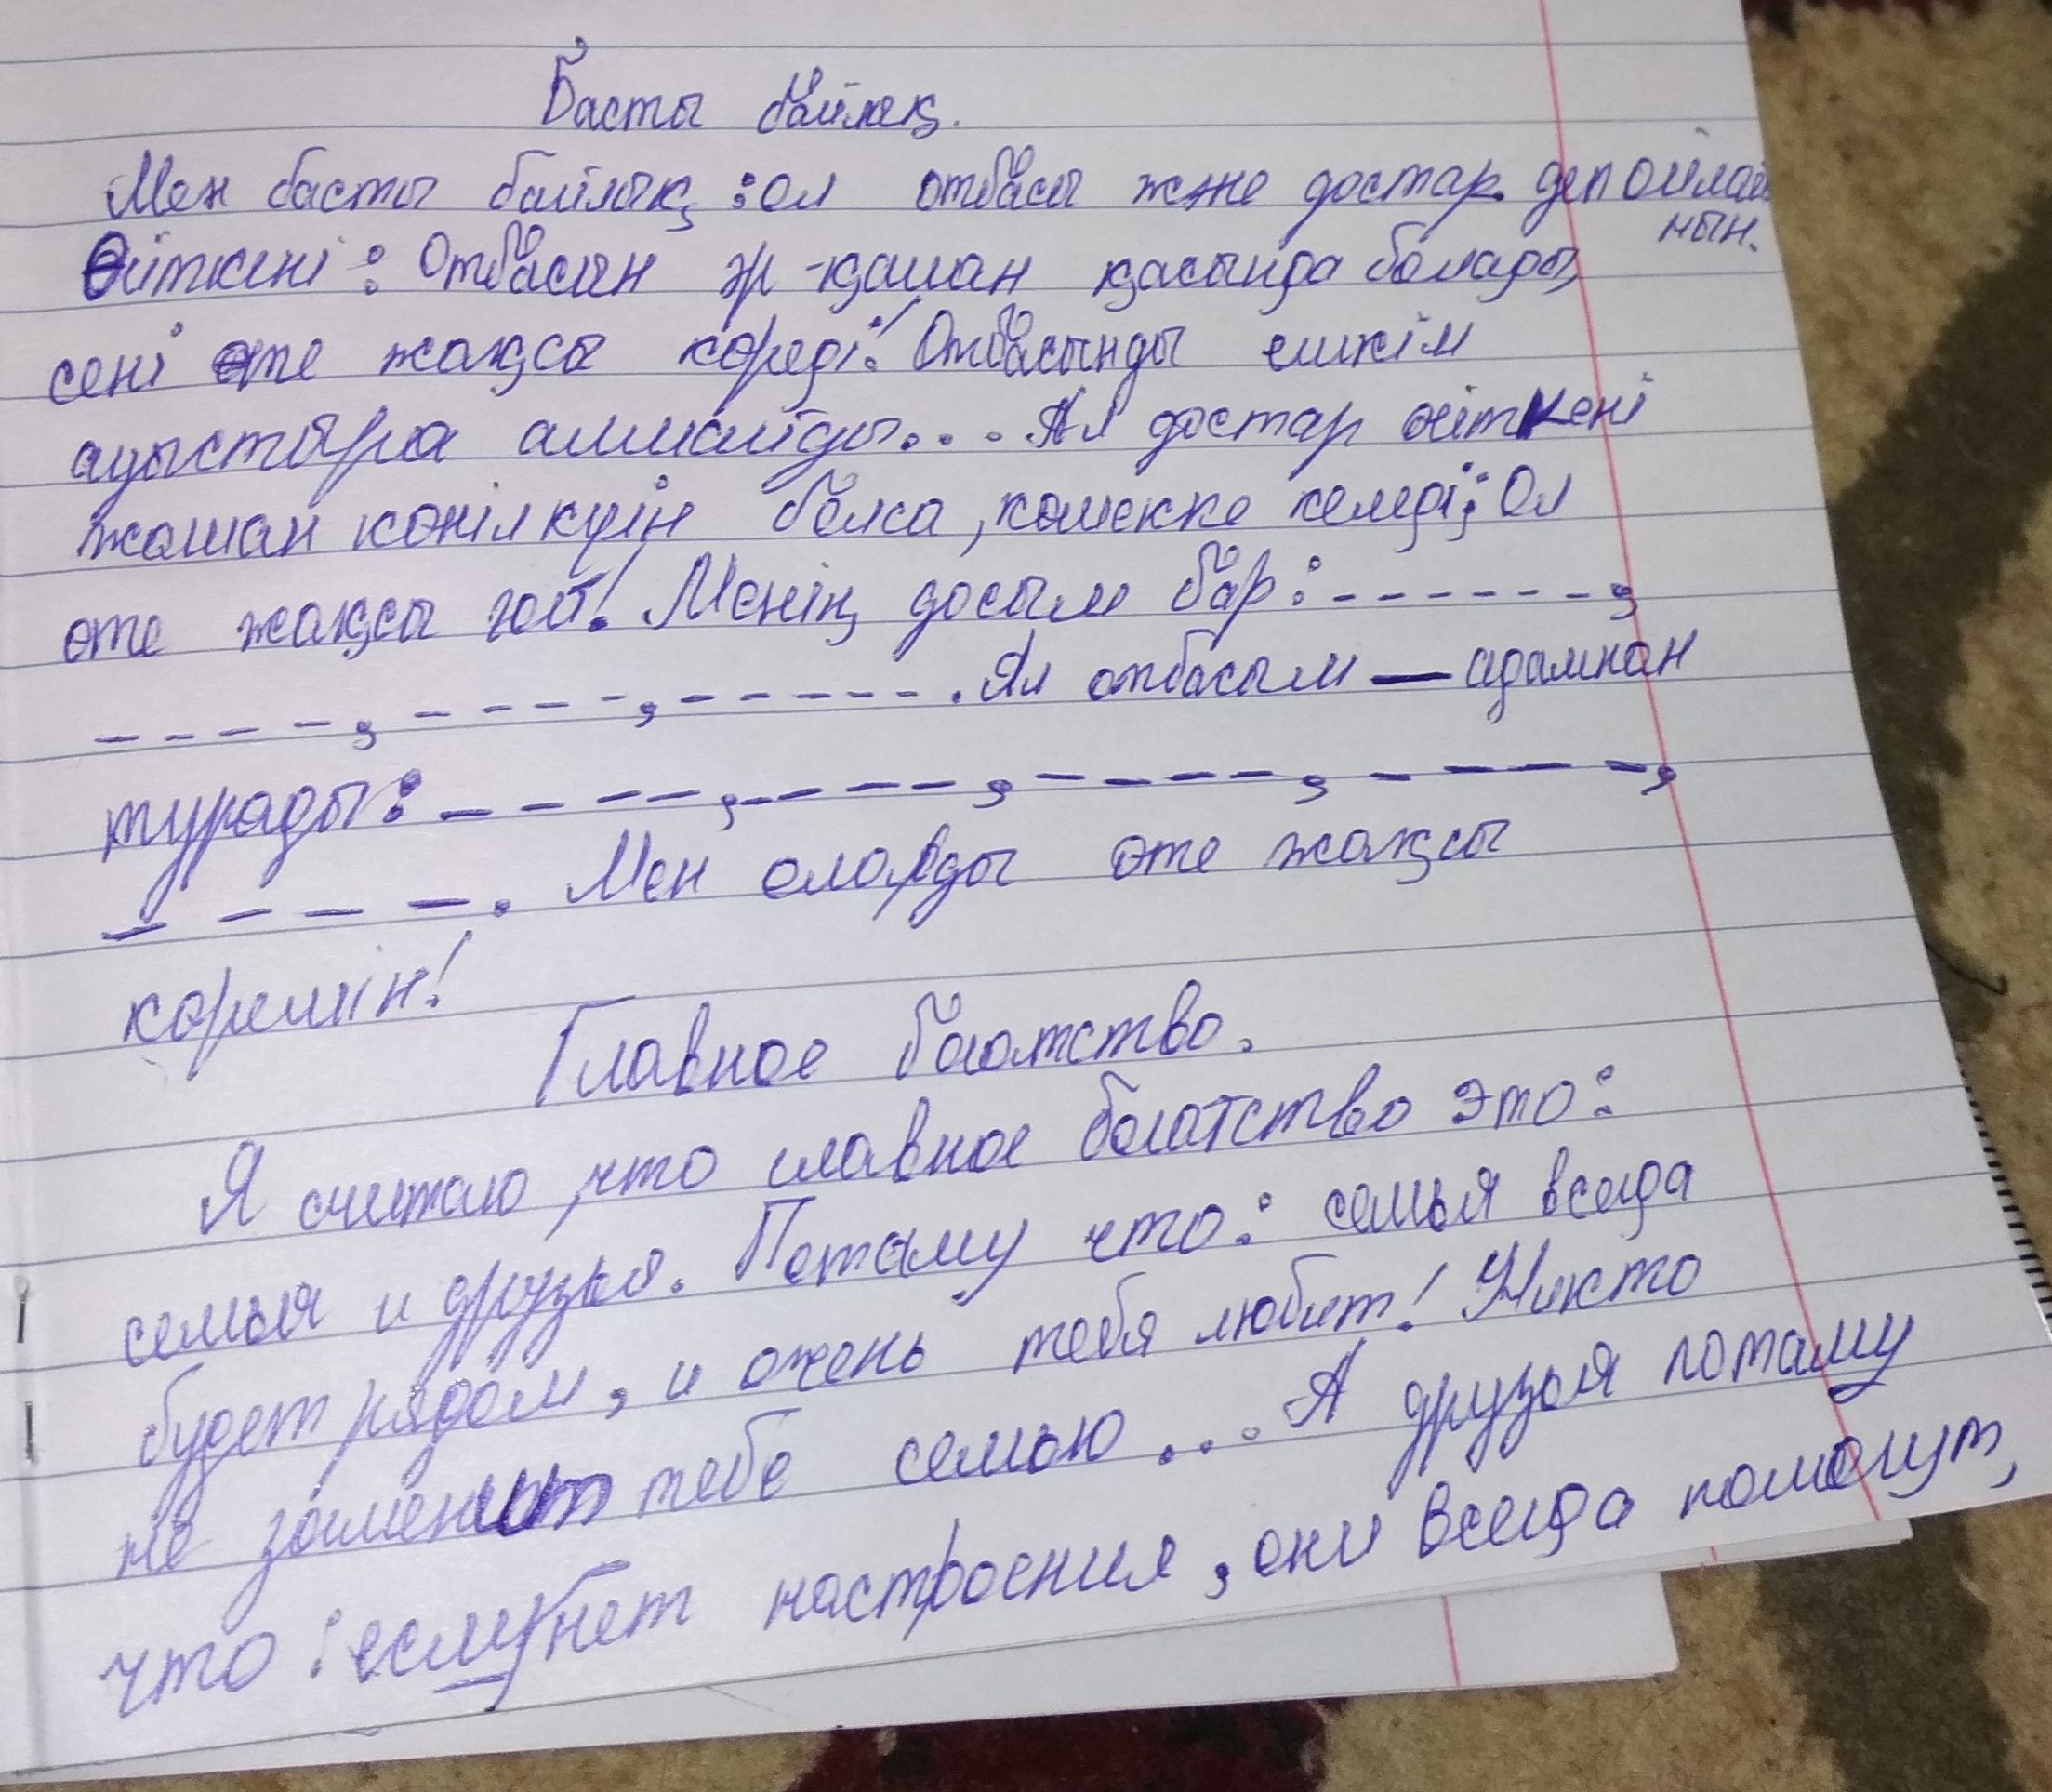 Басты байлық.
Мен басты байлық : ол отбасы және достар деп ойлай
мын.
Өйткені : Отбасын әр - қашан қасында болады,
сені өте жақсы көреді! Отбасынды ешкім
ауыстыра алмайды... Ал достар өйткені
жаман көңіл күйін болса, көмекке келеді; Ол
өте жақсы ғой! Менің досым бар : - - - - - - - ,
- - - - - , - - - - - , - - - - - - . Ал отбасым — адамнан
турады : - - - - - , - - - - - , - - - - - , - - - - - ,
- - - - - . Мен оларды өте жақсы
көремін!
Главное богатство.
Я считаю, что главное богатство это :
семья и друзья. Потаму что : семья всегда
будет рядом, и очень тебя любит! Никто
не заменит тебе семью... А друзья потаму
что : если нет настроения, они всегда помогут,